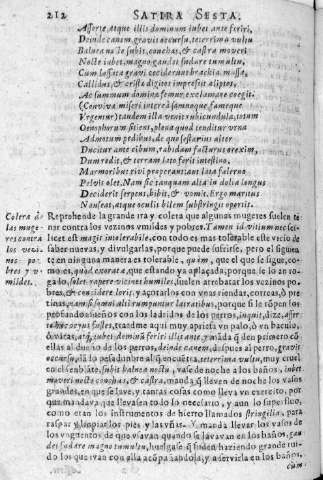 212 SATIRA SESTA.
Afferte, atque illis dominum iubet ante feriri,
Deinde canem, gravis occursu, teterrima vultu
Balnea nocte subit, conchas, & castra moveri
Nocte iubet, magno gaudet sudare tumultu,
Cum lassata gravi ceciderunt brachia massa,
Callidus, & cristæ digitos impressit aliptes,
Ac summum dominæ femur exclamare coegit.
(Convivæ miseri interea somnoque, fameque
Vrgentur) tandem illa venit rubicundula, totum
Oenophorum sitiens, plena quod tenditur vrna
Admotum pedibus, de quo sextarius alter
Ducitur ante cibum, rabidam facturus orexim,
Dum redit, & terram loto ferit intestino.
Marmoribus rivi properant, aut lata falerno
Pelvis olet. Nam sic tanquam alta in dolia longus
Deciderit serpens, bibit, & vomit. Ergo maritus
Nauseat, atque oculis bilem substringit opertis.
Colera de Reprehende la grande ira y colera que algunas mugeres suelen te-
las muge- ner contra los vezinos vmildes y pobres. Tamen id vitium nec sci-
res contra licet est magis intolerabile, con todo es mas tolerable este vicio de
los vezi- saber nuevas, y divulgarlas, porque puede sufrirse, pero el siguien
nos po- te en ninguna manera es tolerable, quàm, que el que se sigue, co-
bres y v- mo es, quod exorata, que estando ya aplacada, porque se lo an ro-
mildes. gado, solet rapere vicinos humiles, suelen arrebatar los vezinos po-
bres, & concidere loris, y açotarlos con vnas riendas, correas, ò pre-
tinas, nam si somni alti rumpuntur latratibus, porque si le rõpen los
profundos sueños con los ladridos de los perros, inquit, dize, affer-
te huc ocyus fustes, traedme aqui muy aprieta vn palo, ò vn baculo,
ò vacas, atq; iubet dominũ feriri illis ante, y mãda q̃ den primero cõ
ellas al dueño de los perros, deinde canem, despues al perro, gravis
occursu, ella pesadumbre al q̃ encuẽtra, teterrima vultu, muy cruel
en el semblãte, subit balnea nocte, vase de noche a los baños, iubet
moveri nocte conchas, & castra, manda q̃ lleven de noche los vasos
grandes, en que se lave, y tantas cosas como lleva vn exercito, por
que mandava que llevasen todo lo necesario, y aun lo superfluo,
como eran los instrumentos de hierro llamados stringilia, para
raspar y limpiar los pies y las vñas. Y manda llevar los vasos de
los vnguentos de que vsavan quando se lavavan en los baños, gau
det sudare magno tumultu, huelgase q̃ suden haziendo grande rui-
do los que ivan con ella acõpañandola, y a servirla en los baños,
cùm